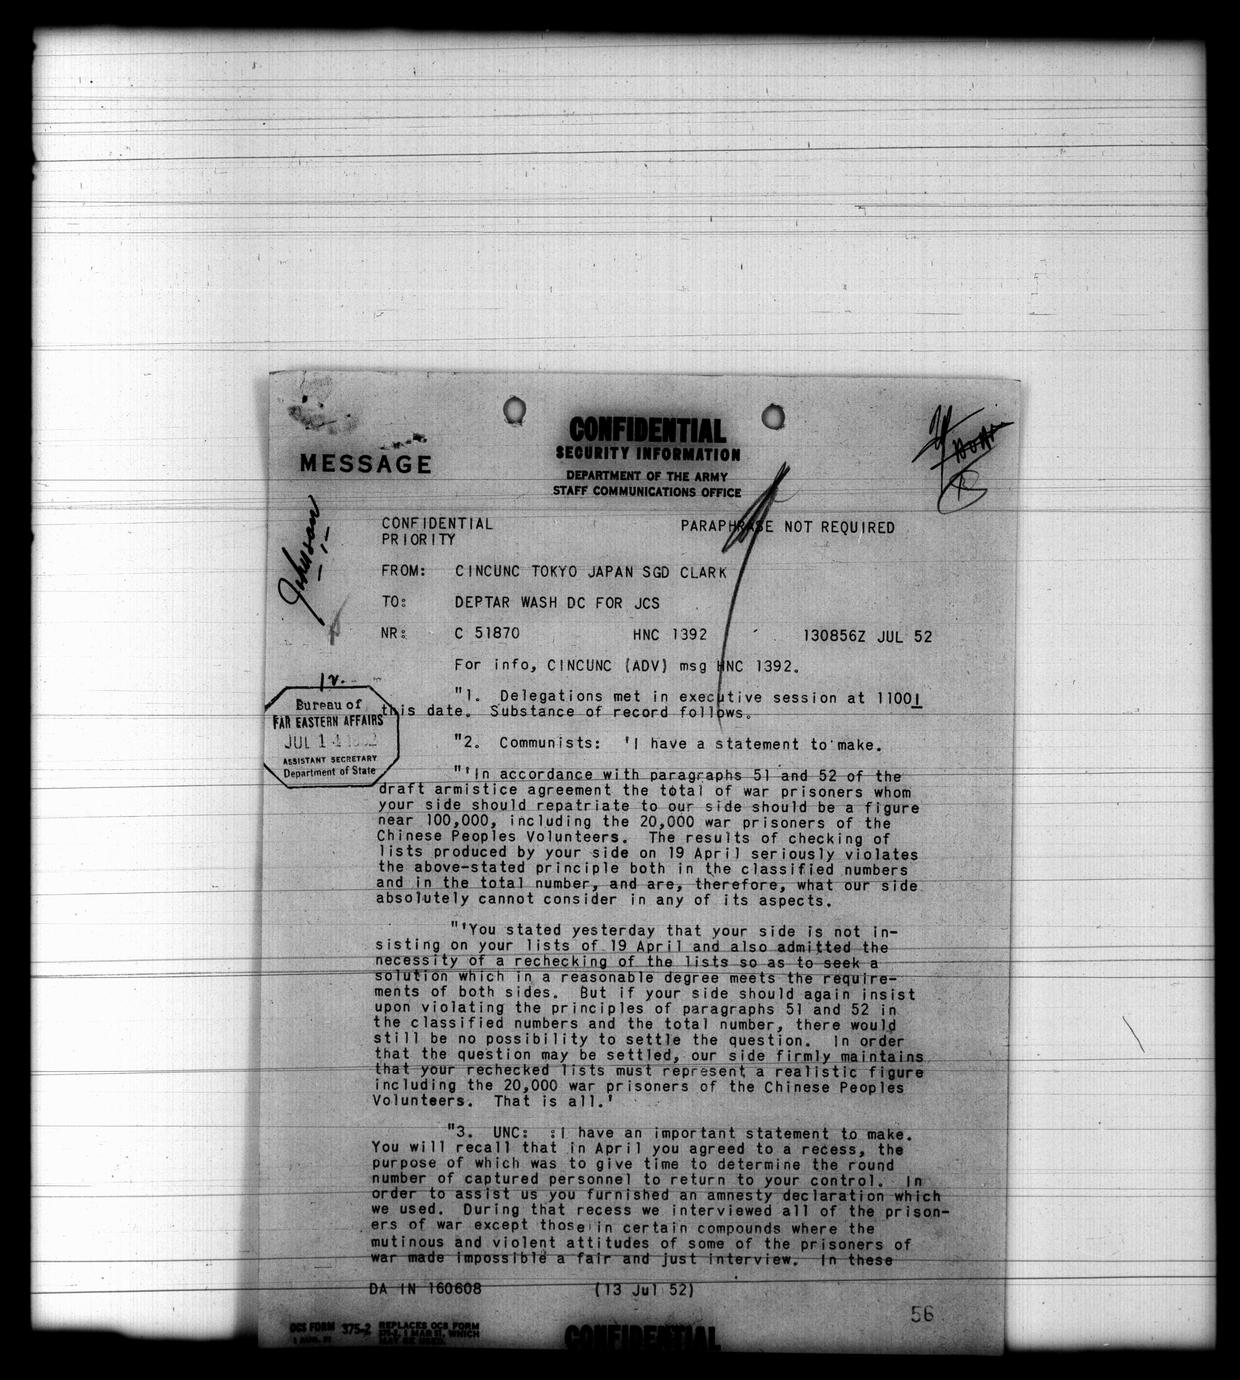 CONFIDENTIAL
SECURITY INFORMATION
MESSAGE
DEPARTMENT OF THE ARMY
STAFF COMMUNICATIONS OFFICE
Johnson
CONFIDENTIAL PARAPHRASE NOT REQUIRED
PRIORITY
FROM: CINCUNC TOKYO JAPAN SGD CLARK
TO: DEPTAR WASH DC FOR JCS
NR: C 51870 HNC 1392 130856Z JUL 52
For info, CINCUNC (ADV) msg HNC 1392.
"1. Delegations met in executive session at 1100I
this date. Substance of record follows.
Bureau of
FAR EASTERN AFFAIRS
JUL 14 1952
ASSISTANT SECRETARY
Department of State
"2. Communists: 'I have a statement to make.
"'In accordance with paragraphs 51 and 52 of the
draft armistice agreement the total of war prisoners whom
your side should repatriate to our side should be a figure
near 100,000, including the 20,000 war prisoners of the
Chinese Peoples Volunteers. The results of checking of
lists produced by your side on 19 April seriously violates
the above-stated principle both in the classified numbers
and in the total number, and are, therefore, what our side
absolutely cannot consider in any of its aspects.
"'You stated yesterday that your side is not in-
sisting on your lists of 19 April and also admitted the
necessity of a rechecking of the lists so as to seek a
solution which in a reasonable degree meets the require-
ments of both sides. But if your side should again insist
upon violating the principles of paragraphs 51 and 52 in
the classified numbers and the total number, there would
still be no possibility to settle the question. In order
that the question may be settled, our side firmly maintains
that your rechecked lists must represent a realistic figure
including the 20,000 war prisoners of the Chinese Peoples
Volunteers. That is all.'
"3. UNC: :I have an important statement to make.
You will recall that in April you agreed to a recess, the
purpose of which was to give time to determine the round
number of captured personnel to return to your control. In
order to assist us you furnished an amnesty declaration which
we used. During that recess we interviewed all of the prison-
ers of war except those in certain compounds where the
mutinous and violent attitudes of some of the prisoners of
war made impossible a fair and just interview. In these
DA IN 160608 (13 Jul 52)
56
OCS FORM 375-2 REPLACES OCS FORM
375-2, 1 MAR 51, WHICH
MAY BE USED.
1 AUG. 51
CONFIDENTIAL